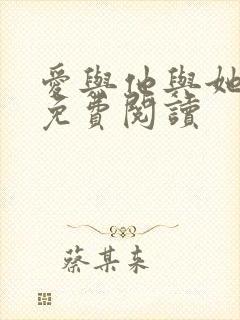 愛與他與她
免費閱讀
蔡某来